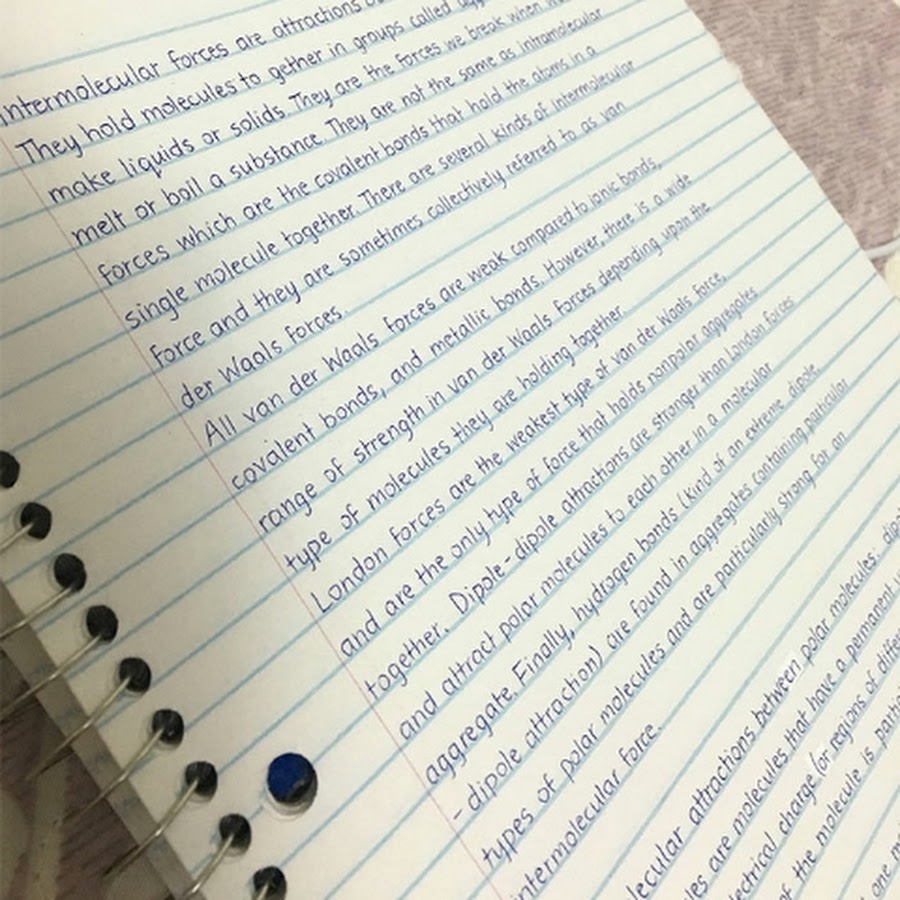 Intermolecular forces are attractions
They hold molecules to gether in groups called
make liquids or solids. They are the forces we break when
melt or boil a substance. They are not the same as intramolecular
forces which are the covalent bonds that hold the atoms in a
single molecule together. There are several kinds of intermolecular
force and they are sometimes collectively referred to as van
der Waals forces.
All van der Waals forces are weak compared to ionic bonds,
covalent bonds, and metallic bonds. However, there is a wide
range of strength in van der Waals forces depending upon the
type of molecules they are holding together.
London forces are the weakest type of van der Waals force,
and are the only type of force that holds nonpolar aggregates
together. Dipole-dipole attractions are stronger than London forces
and attract polar molecules to each other in a molecular
aggregate. Finally, hydrogen bonds (kind of an extreme dipole
-dipole attraction) are found in aggregates containing particular
types of polar molecules and are particularly strong for an
intermolecular force.
attractions between polar molecules:
are molecules that have a permanent
charge (or regions of
of the molecule is
one